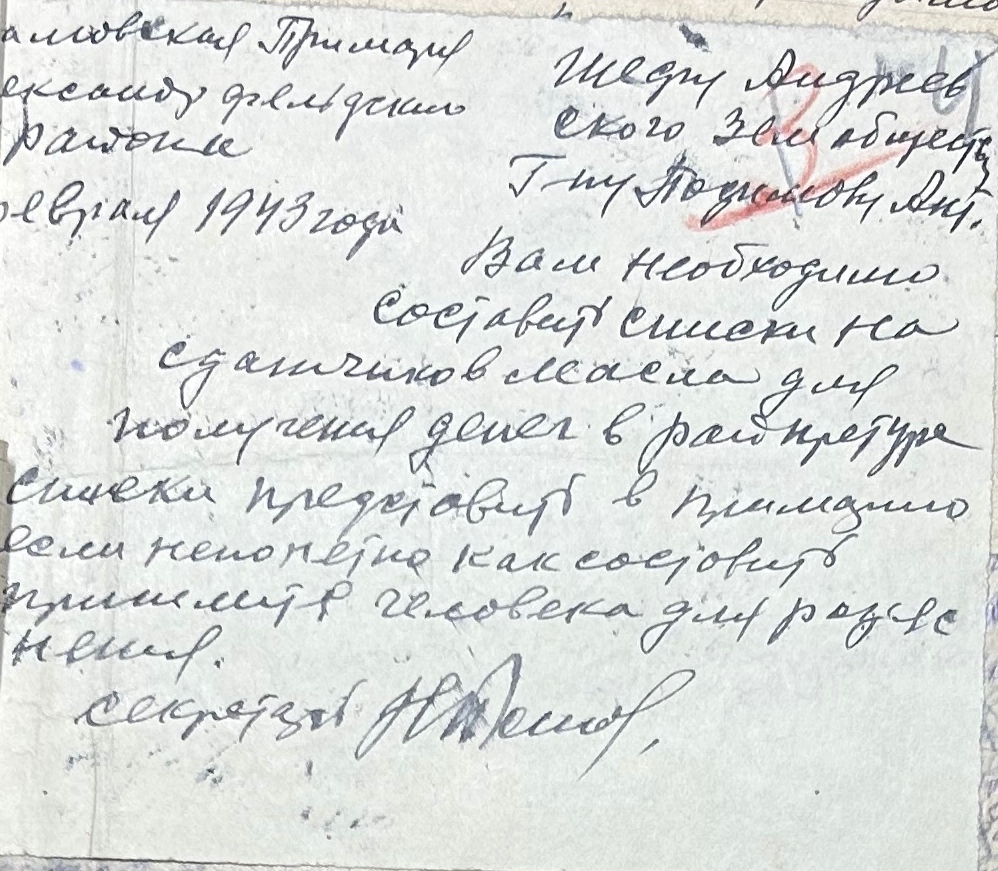 амовская Примария
ександрфельдского
района
евраля 1943 года
Шефу Андреев
ского Зем общества
Г-ну Подымову Ант.
Вам необходимо
составить списки на
сдатчиков масла для
получения денег в райпретуре
списки предстовить в примарию
если непонетно как состовить
пришлите человека для разяс
нения.
секретарь